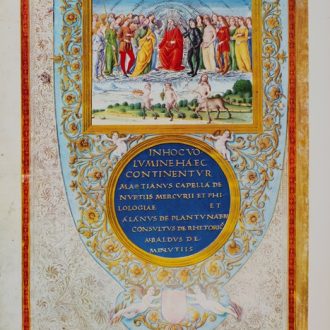 IN HOC VO
LVMINE HAEC
CONTINENTVR
MARTIANVS CAPELLA DE
NVPTIIS MERCVRII ET PHI
LOLOGIAE ET
ALANVS DE PLANTV NATVRE
CONSVLTVS DE RHETORIC
BALDVS DE
MINVTIIS